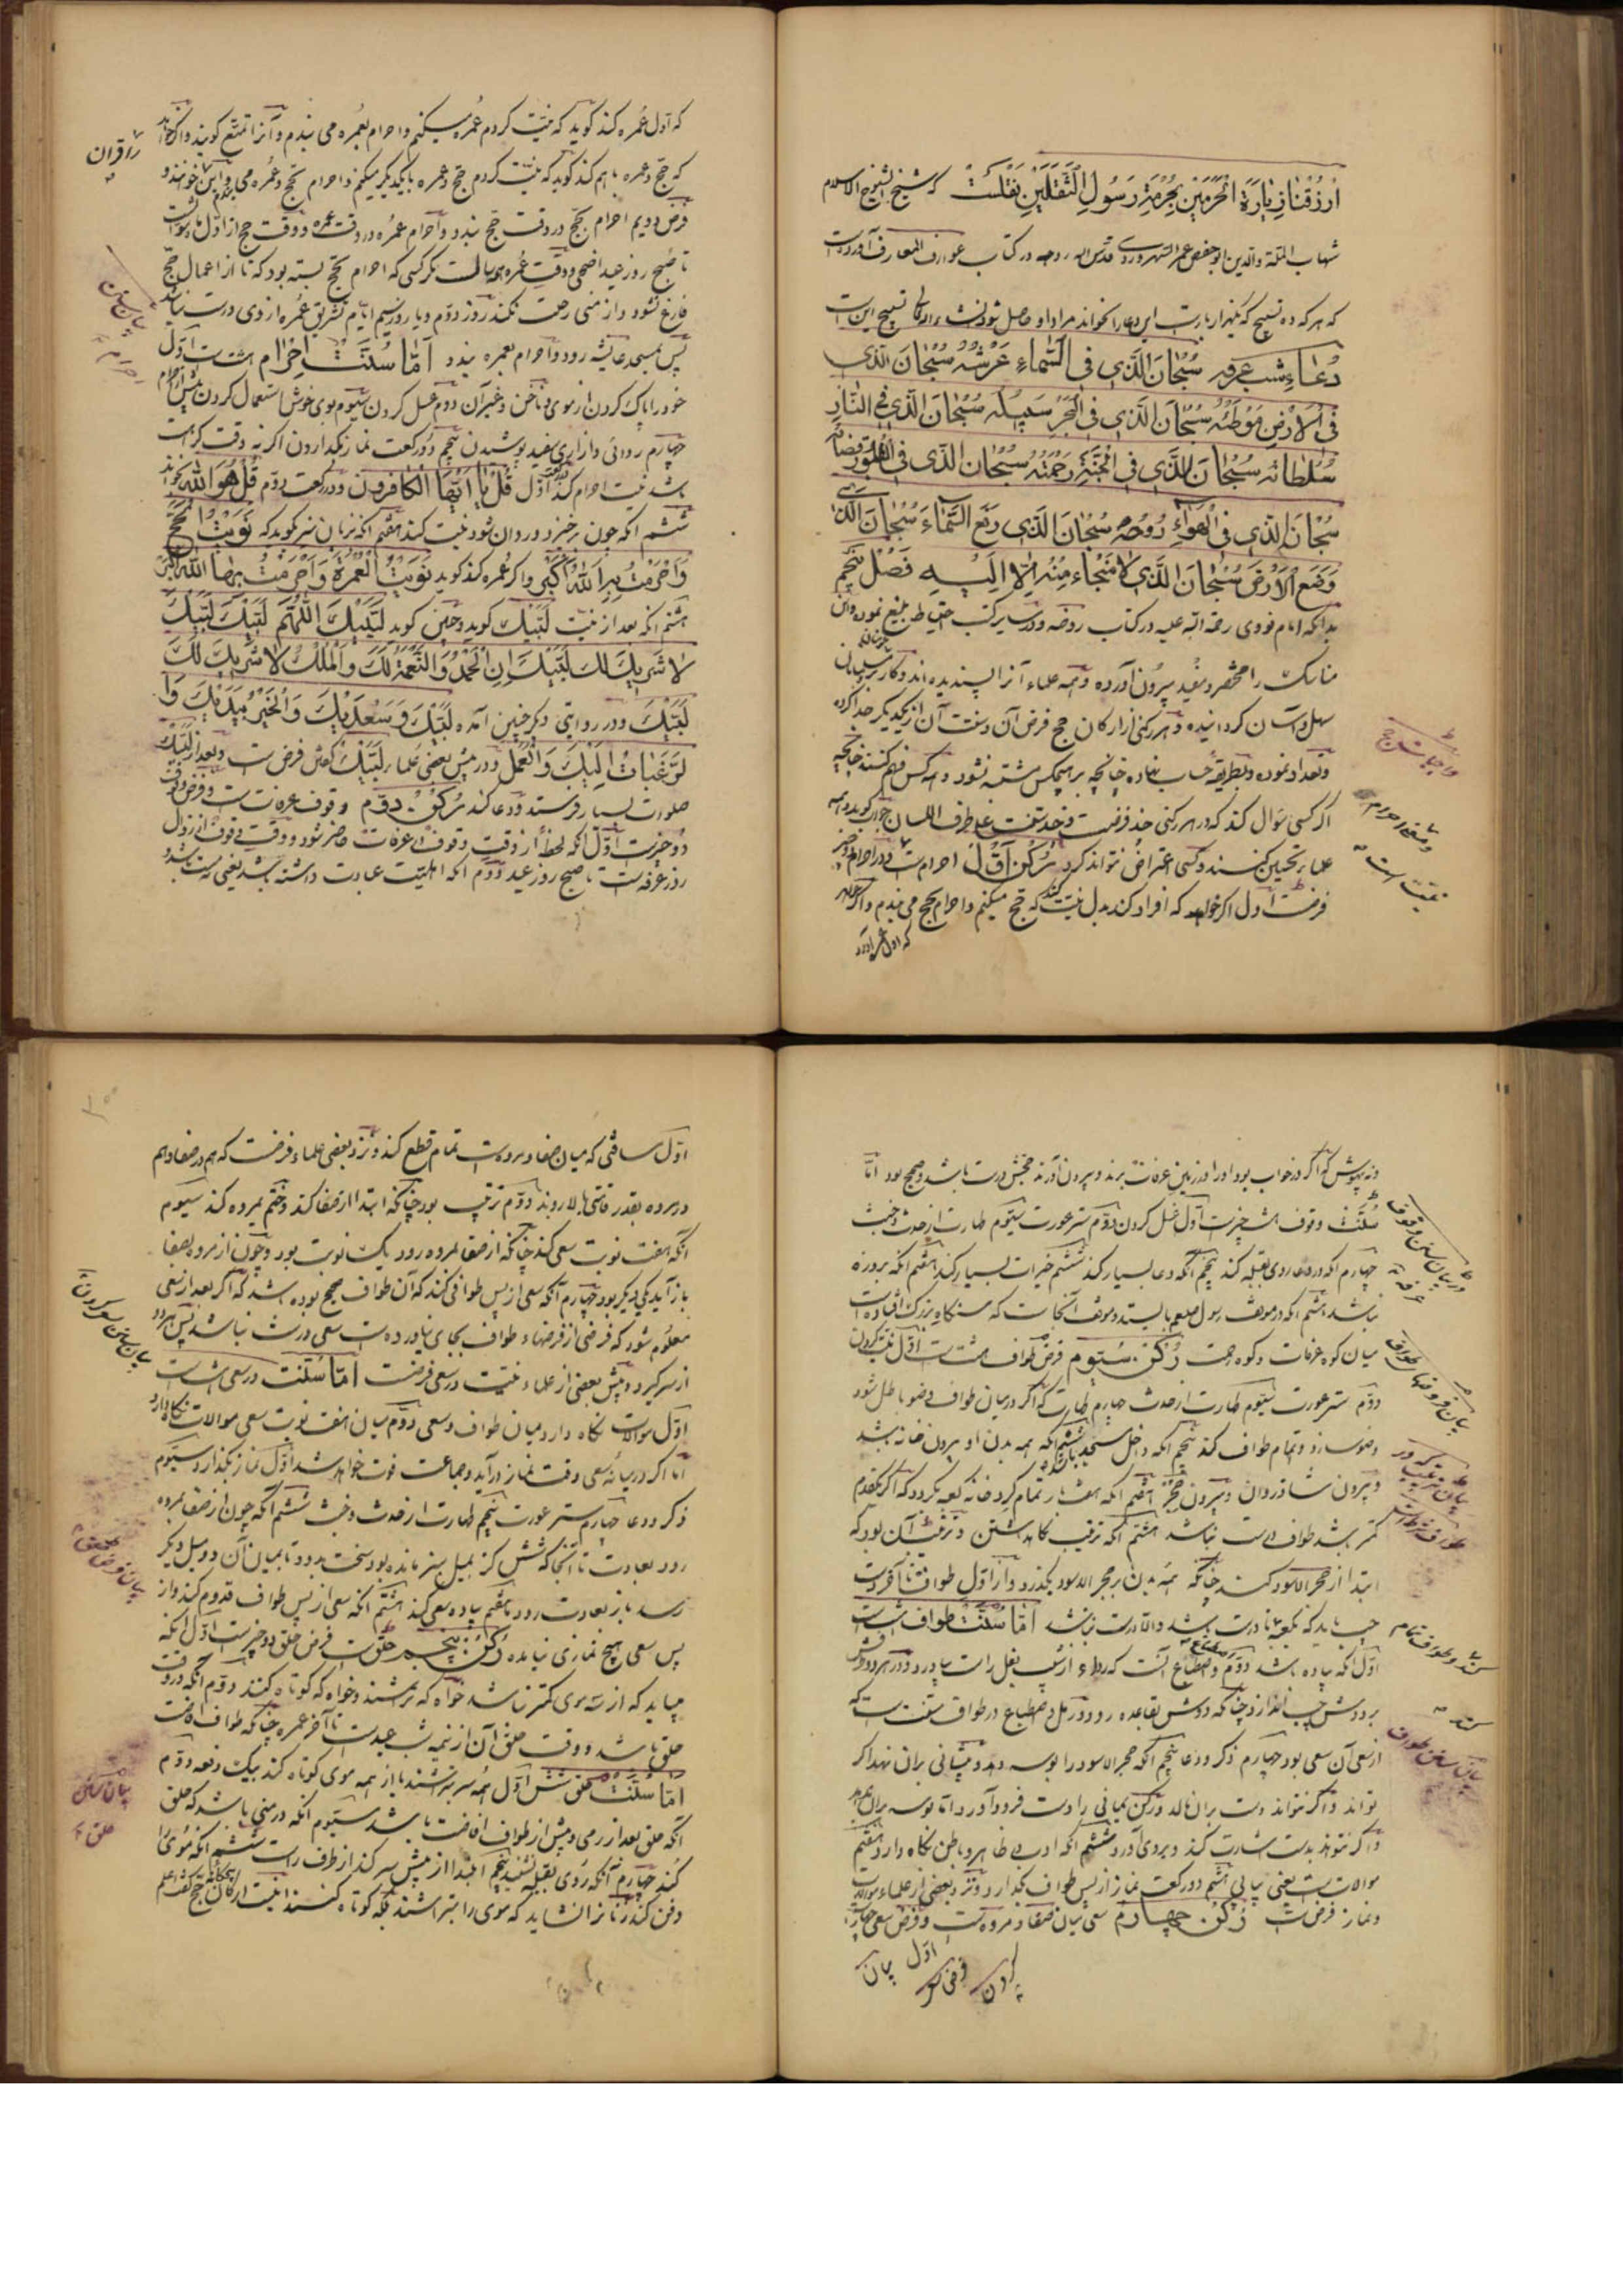 ارزقنا زیارة الحرمین بحرمة رسول الثقلین نقلست که شیخ الشیوخ الاسلام
شهاب الملة والدین ابو حفص عمر السهروردی قدس الله روحه در کتاب عوارف المعارف آورده است
که هر که ده تسبیح که هزار بار است این دعا را بخواند مراد او حاصل شود تسبیح این است
دعاء شب عرفه سبحان الذی فی السماء عرشه سبحان الذی
فی الارض موطئه سبحان الذی فی البحر سبیله سبحان الذی فی النار
سلطانه سبحان الذی فی الجنة رحمته سبحان الذی فی القبور قضاؤه
سبحان الذی فی الهواء روحه سبحان الذی رفع السماء سبحان الذی
وضع الارض سبحان الذی لا منجاء منه الا الیه فصل پنجم
بدانکه امام نووی رحمة الله علیه در کتاب روضه و در سایر کتب احتیاط بلیغ نموده و این
مناسک را مختصر و مفید بیرون آورده و همه علماء آنرا پسندیده اند و کار بر
سهل و آسان گردانیده و هر رکنی از ارکان حج فرض آن و سنت آن از یکدیگر جدا کرده
وتعداد نموده و بطریقه حساب نهاده چنانچه بر هیچکس مشتبه نشود و همه کس فهم کنند چنانچه
اگر کسی سوال کند که در هر رکنی چند فرضست و چند سنت علی طرف اللسان جواب گوید و همه
علما تحسین کنند و کسی اعتراض نتواند کرد رکن اول احرام است و در احرام دو چیز
فرضست اول اگر خواهد که افراد کند بدل نیت کند که حج میکنم و احرام بحج می بندم و اگر خواهد
که اول عمره
واجبات حج
که اول عمره کند گوید که نیت کردم عمره میکنم و احرام بعمره می بندم و آنرا تمتع گویند و اگر خواهد
که حج و عمره با هم کند گوید که نیت کردم حج و عمره با یکدیگر میکنم و احرام بحج و عمره می بندم و این را خوانند و
را قران
فرض دویم احرام حج در وقت حج بندد و احرام عمره در وقت عمره و وقت حج از اول ماه شوال است
تا صبح روز عید اضحی و وقت عمره همه سالست مگر کسی که احرام بحج بسته بود که تا از اعمال حج
فارغ نشود و از منی رحلت نکند روز دوم و یا روز سیم ایام تشریق عمره از وی درست نباشد
پس بمسجد عایشه رود و احرام بعمره بندد اما سنت احرام هشت است اول
خود را پاک کردن از موی و ناخن و غیر آن دوم غسل کردن سیوم بوی خوش استعمال کردن پیش از احرام
چهارم ردائی و ازاری سفید پوشیدن پنجم دو رکعت نماز بگذاردن اگر نه وقت کراهت
باشد نیت احرام کند در رکعت اول قل یا ایها الکافرون و در رکعت دوم قل هو الله بخواند
ششم انکه چون برخیزد و روان شود نیت کند هفتم انکه بزبان نیز گوید که نویت الحج
واحرمت به الله اکبر و اگر عمره کند گوید نویت العمرة واحرمت بها الله اکبر
هشتم انکه بعد از نیت لبیک گوید و چنین گوید لبیک اللهم لبیک لبیک
لا شریک لک لبیک ان الحمد والنعمة لک والملک لا شریک لک
لبیک و در روایتی دیگر چنین آمده لبیک وسعدیک والخیر بیدیک وا
لرغبات الیک والعمل و در پیش بعضی علماء لبیک گفتن فرض است و بعد از لبیک
صلوات بسیار فرستد و دعا کند رکن دوم وقوف عرفه است و فرض وقوف
دو چیز است اول انکه لحظه از وقت وقوف در عرفات حاضر شود و وقت وقوف از زوال
روز عرفه است تا صبح روز عید دوم انکه اهلیت عبادت داشته باشد یعنی مست نباشد
و نه بیهوش که اگر در خواب بود او را در زمین عرفات برند و بیرون آورند حجش درست باشد و صحیح بود اما
سنت وقوف هشت چیز است اول غسل کردن دوم ستر عورت سیوم طهارت از حدث و خبث
چهارم انکه در دعا روی بقبله کند پنجم آنکه دعا بسیار کند ششم خیرات بسیار کند هفتم انکه بروزه
نباشد هشتم انکه در موقف رسول صلعم بایستد و موقف آنجاست که سنگهای بزرگ افتاده است
میان کوه عرفات و کوه رحمت رکن سیوم فرض طواف هشت است اول نیت کردن
دوم ستر عورت سیوم طهارت از حدث چهارم طهارت که اگر در میان طواف وضو باطل شود
وضو سازد و تمام طواف کند پنجم آنکه داخل مسجد باشد ششم آنکه همه بدن او بیرون خانه باشد
و بیرون شاذروان و بیرون حجر هفتم آنکه هفت بار تمام گرد خانه کعبه بگردد که اگر یکقدم
کمتر باشد طواف درست نباشد هشتم انکه ترتیب نگاه داشتن و ترتیب آن بود که
ابتدا از حجر الاسود کند چنانکه همه بدن بر حجر الاسود بگذرد و از اول طواف تا آخر دست
چپ باید که بکعبه باشد و الا درست نباشد اما سنت طواف هشت است
اول انکه پیاده باشد دوم اضطباع آنست که رداء از زیر بغل راست بیارد و
بر دوش چپ اندازد
از سعی آن سعی بود چهارم ذکر و دعا پنجم آنکه حجر الاسود را بوسه دهد و پیشانی بران نهد اگر
تواند و اگر نتواند دست بران مالد و رکن یمانی را دست فرود آورد اما بوسه بران ندهد
و اگر نتواند بدست اشارت کند و بروی آورد ششم انکه ادب ظاهر و باطن نگاه دارد هفتم
موالات است یعنی پیاپی هشتم دو رکعت نماز از پس طواف بگذارد و نزد بعضی از علماء موالات
و نماز فرض است رکن چهارم سعی میان صفا و مروه است و فرض سعی چهار
در بیان سنن وقوف
عرفه
بیان فرضهاء طواف
بیان سنن طواف
اول مسافتی که میان صفا و مروه است تمام قطع کند و نزد بعضی علماء فرضست که هم در صفا و هم
در مروه بقدر قامتی بالا رود دوم ترتیب بود چنانکه ابتدا از صفا کند و ختم بمروه کند سیوم
آنکه هفت نوبت سعی کند چنانکه از صفا بمروه رود یک نوبت بود و چون از مروه بصفا
باز آید یکی دیگر بود چهارم آنکه سعی از پس طوافی کند که آن طواف صحیح بوده باشد که اگر بعد از سعی
معلوم شود که فرضی از فرضهاء طواف بجای نیاورده است سعی درست نباشد پس
از سر گیرد و پیش بعضی از علماء نیت در سعی فرضست اما سنت در سعی هشت است
اول موالات نگاه دارد میان طواف و سعی دوم میان هفت نوبت سعی موالات نگاه دارد
اما اگر در میانه سعی وقت نماز درآید و جماعت فوت خواهد شد اول نماز بگذارد سیوم
ذکر و دعا چهارم ستر عورت پنجم طهارت از حدث و خبث ششم آنکه چون از صفا بمروه
رود بعادت تا آنجا که شش گز بمیل سبز مانده بود سخت بدود تا بمیان آن دو میل دیگر
رسد باز بعادت رود هفتم پیاده سعی کند هشتم آنکه سعی از پس طواف قدوم کند و از
پس سعی هیچ نمازی نیامده رکن پنجم حلق است فرض حلق دو چیز است اول انکه
میباید که از سه موی کمتر نباشد خواه که بتراشند و خواه که کوتاه کنند دوم آنکه در وقت
حلق باشد و وقت حلق آن از نیمه شب عید است تا آخر عمره چنانکه طواف افاضت
اما سنت حلق شش اول همه سر بتراشند یا از همه موی کوتاه کند بیک دفعه دوم
آنکه حلق بعد از رمی و پیش از طواف افاضت باشد سیوم انکه در منی باشد که حلق
کند چهارم آنکه روی بقبله نشیند پنجم ابتدا از پیش سر کند از طرف راست ششم انکه موی را
دفن کند زنانرا نشاید که موی را بتراشند بلکه کوتاه کنند اینست ارکان حج
بیان سنن
حلق